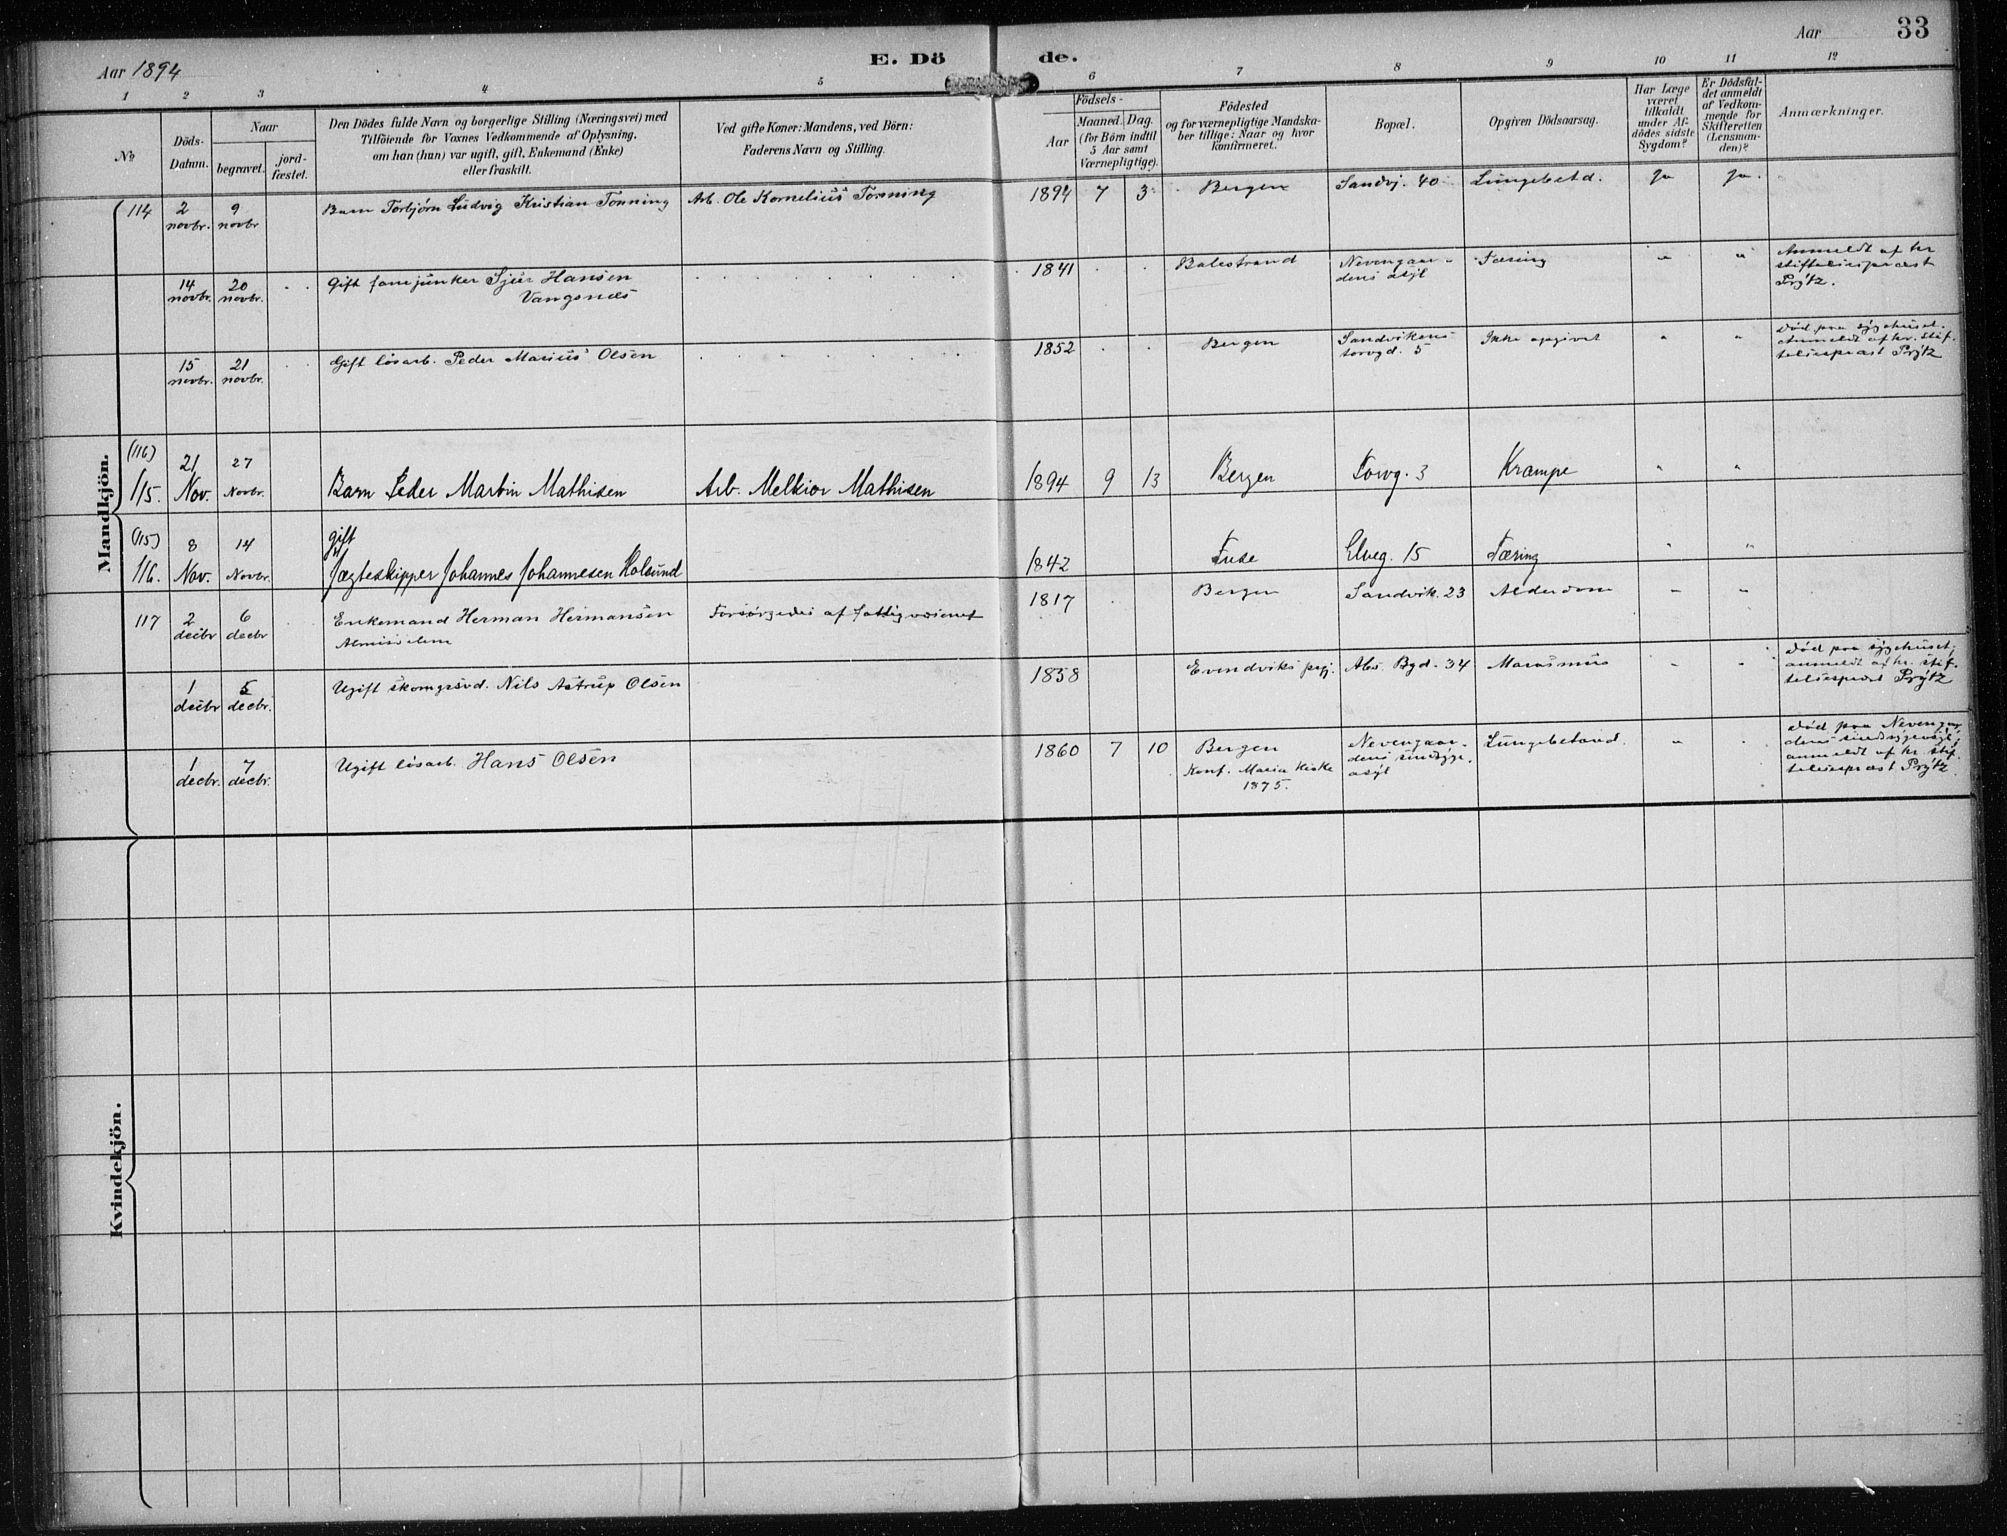 Aar 1894
E. Dö de.
Aar
33
1 2 3 4 5 6 7 8 9 10 11 12
No
Döds-Datum.
Naar
begravet.
jord-fæstet.
Den Dödes fulde Navn og borgerlige Stilling (Næringsvei) med
Tilföiende for Voxnes Vedkommende af Oplysning,
om han (hun) var ugift, gift, Enkemand (Enke)
eller fraskilt.
Ved gifte Koner: Mandens, ved Börn:
Faderens Navn og Stilling.
Födsels-
Aar
Maaned. Dag.
(for Börn indtil
5 Aar samt
Værnepligtige).
Födested
og for værnepligtige Mandska-
ber tillige: Naar og hvor
konfirmeret.
Bopæl.
Opgiven Dödsaarsag.
Har Læge
været
tilkaldt
under Af-
dödes sidste
Sygdom?
Er Dödsfal-
det anmeldt
af Vedkom-
mende for
Skifteretten
(Lensman-
den)?
Anmærkninger.
Mandkjön.
114 2 novbr. 9 novbr Barn Torbjørn Ludvig Kristian Tonning Arb. Ole Kornelius Tonning 1894 7 3 Bergen Sandvj. 40 Lungebetd. Ja Ja.
14 novbr. 20 novbr. Gift fanejunker Sjur Hansen
Vangsnæs
1841 Balestrand Nevengaar-
dens asyl
Tæring " " Anmeldt af hr
stiftelsespræst
Prÿtz.
15 novbr. 21 novbr. Gift løsarb. Peder Marius Olsen 1852 Bergen Sandvikens
torvgd. 5
Ikke opgivet " " Død paa sygehuset.
Anmeldt af hr. stif-
telsespræst Prÿtz
(116)
115. 21 Nov. 27 Novbr. Barn Peder Martin Mathisen Arb. Melkior Mathisen 1894 9 13 Bergen Torvg. 3 Krampe " "
(115)
116. 8 Nov. 14 Novbr. gift
Jægteskipper Johannes Johannesen Holsund 1842 Fuse Elveg. 15 Tæring " "
117 2 decbr 6 decbr Enkemand Herman Hermansen
Almisselem
Forsørgedes af fattigvæsenet 1817 Bergen Sandvik. 23 Alderdom " "
1 decbr 5 decbr. Ugift skomgrsvd. Nils Astrup Olsen 1858 Evendviks prgj. Abs. Bgd. 34 Marasmus " " Død paa sygehuset,
anmeldt af hr. stif-
telsespræst Prÿtz
1 decbr. 7 decbr. Ugift løsarb. Hans Olsen 1860 7 10 Bergen
Konf. Maria Kirke
1875.
Nevengaar-
dens sindssyge-
asyl
Lungebetænd. " " Død paa Nevengaar-
dens sindssygeasyl,
anmeldt af hr. stif-
telsespræst Prÿtz.
Kvindekjön.